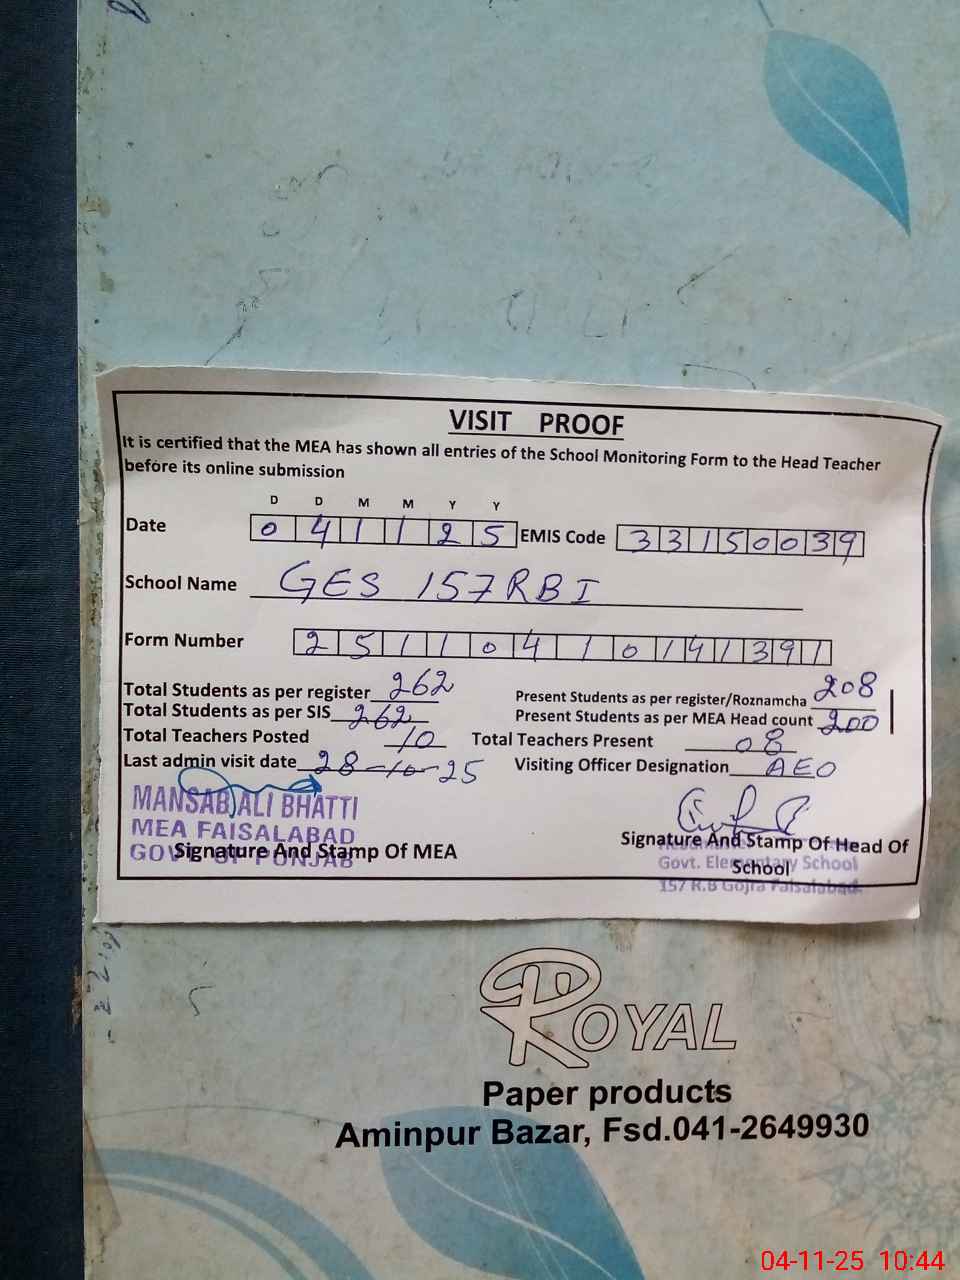 VISIT PROOF
It is certified that the MEA has shown all entries of the School Monitoring Form to the Head Teacher
before its online submission
D D M M Y Y
Date 0 4 1 1 2 5 EMIS Code 3 3 1 5 0 0 3 9
School Name GES 157RBI
Form Number 2 5 1 1 0 4 1 0 1 4 1 3 9 1
Total Students as per register 262 Present Students as per register/Roznamcha 208
Total Students as per SIS 262 Present Students as per MEA Head count 200
Total Teachers Posted 10 Total Teachers Present 08
Last admin visit date 28-10-25 Visiting Officer Designation AEO
MANSAB ALI BHATTI
MEA FAISALABAD
GOVT OF PUNJAB
Signature And Stamp Of MEA
Signature And Stamp Of Head Of
School
Govt. Elementary School
157 R.B Gojra Faisalabad.
ROYAL
Paper products
Aminpur Bazar, Fsd.041-2649930
04-11-25 10:44